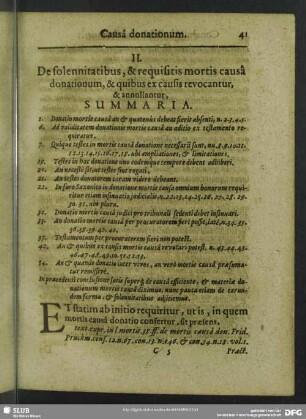 Causâ donationum. 41
II.
De solennitatibus, & requisitis mortis causâ
donationum, & quibus ex causis revocantur,
& annullantur,
SUMMARIA.
1. Donatio mortis causâ an & quatenus debeat fieri absenti, n. 2. 3. 4. 5.
6. Ad validitatem donationis mortis causâ an aditio ex testamento re
quiratur.
7. Quinque testes in mortis causâ donatione necessarii sunt, nu. 8. 9. 10. 11.
12. 13. 14. 15. 16. 17. 18. ubi ampliationes, & limitationes.
19. Testes in hac donatione uno eodemque tempore debent adhiberi.
20. An necesse sit ut testes sint rogati.
21. An testes donatorem coram videre debeant.
22. In jure Saxonico in donatione mortis causâ omnium bonorum requi-
ritur etiam insinuatio judicialis, n. 22. 23. 24. 25. 26. 27. 28. 29.
30. 31. nisi plura.
32. Donatio mortis causâ judici pro tribunali sedenti debet insinuari.
33. An donatio mortis causâ per procuratorem fieri possit, latè, n. 34. 35.
36. 38. 39. 40. 41.
37. Testamentum per procuratorem fieri non potest.
42. An & quibus ex causis mortis causâ revocari potest. n. 43. 44. 45.
46. 47. 48. 49. 50. 51. 52. 53.
54. An & quando donatio inter vivos, an verò mortis causâ præsuma-
tur remissivè.
In præcedenti conclusione satis superq́; de causâ efficiente, & materia do-
nationum mortis causâ diximus: nunc pauca etiam de earun-
dem forma & solennitatibus adjiciemus.
ET statim ab initio requiritur, ut is, in quem
mortis causâ donatio confertur, sit præsens,
text. expr. in l. mortis. 38. ff. de mortis causâ don. Frid.
Pruckm. cons. 12. n. 57. con. 13. n. 146. & con. 34. n. 18. vol. 1.
C 5 Pract.
SLUB
DFG